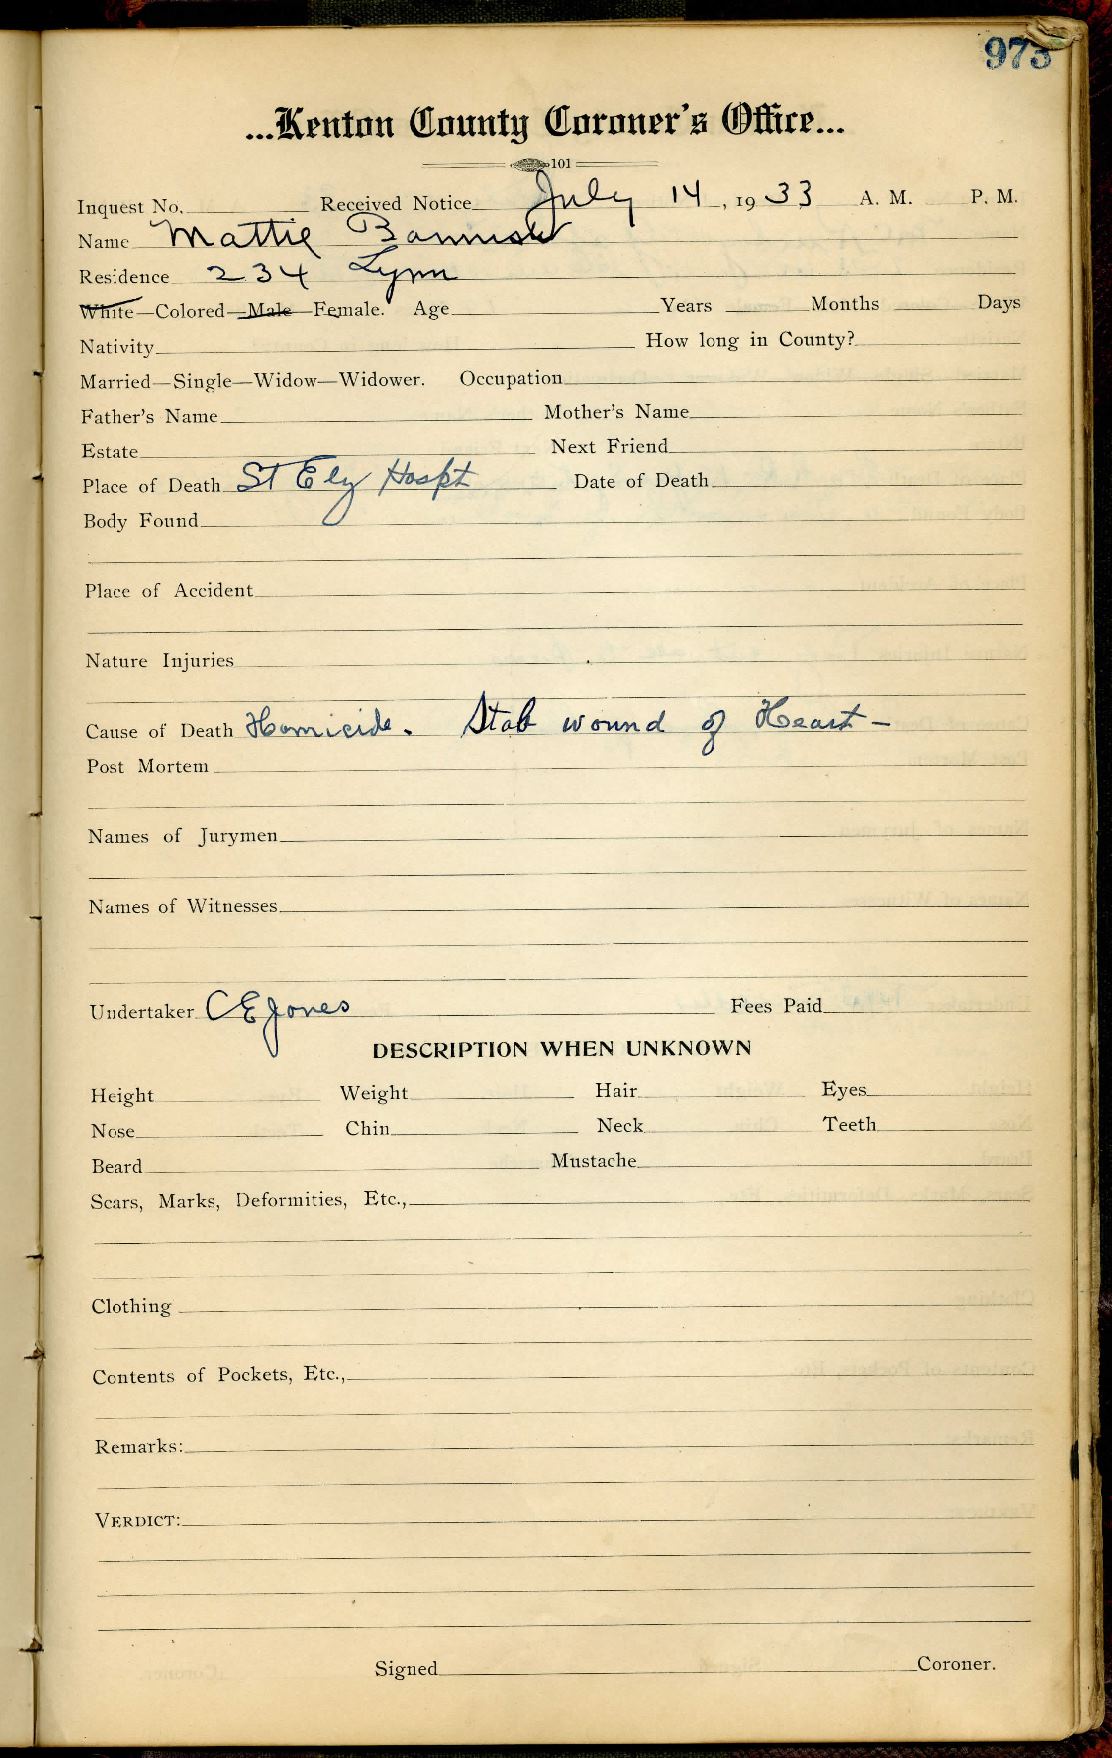 975
...Kenton County Coroner's Office...
101
Inquest No. Received Notice July 14, 1933 A. M. P. M.
Name Mattie Bannister
Residence 234 Lynn
White—Colored—Male—Female. Age Years Months Days
Nativity How long in County?
Married—Single—Widow—Widower. Occupation
Father's Name Mother's Name
Estate Next Friend
Place of Death St Eliz Hospt Date of Death
Body Found
Place of Accident
Nature Injuries
Cause of Death Homicide. Stab wound of Heart-
Post Mortem
Names of Jurymen
Names of Witnesses
Undertaker C E Jones Fees Paid
DESCRIPTION WHEN UNKNOWN
Height Weight Hair Eyes
Nose Chin Neck Teeth
Beard Mustache
Scars, Marks, Deformities, Etc.,
Clothing
Contents of Pockets, Etc.,
Remarks:
VERDICT:
Signed Coroner.